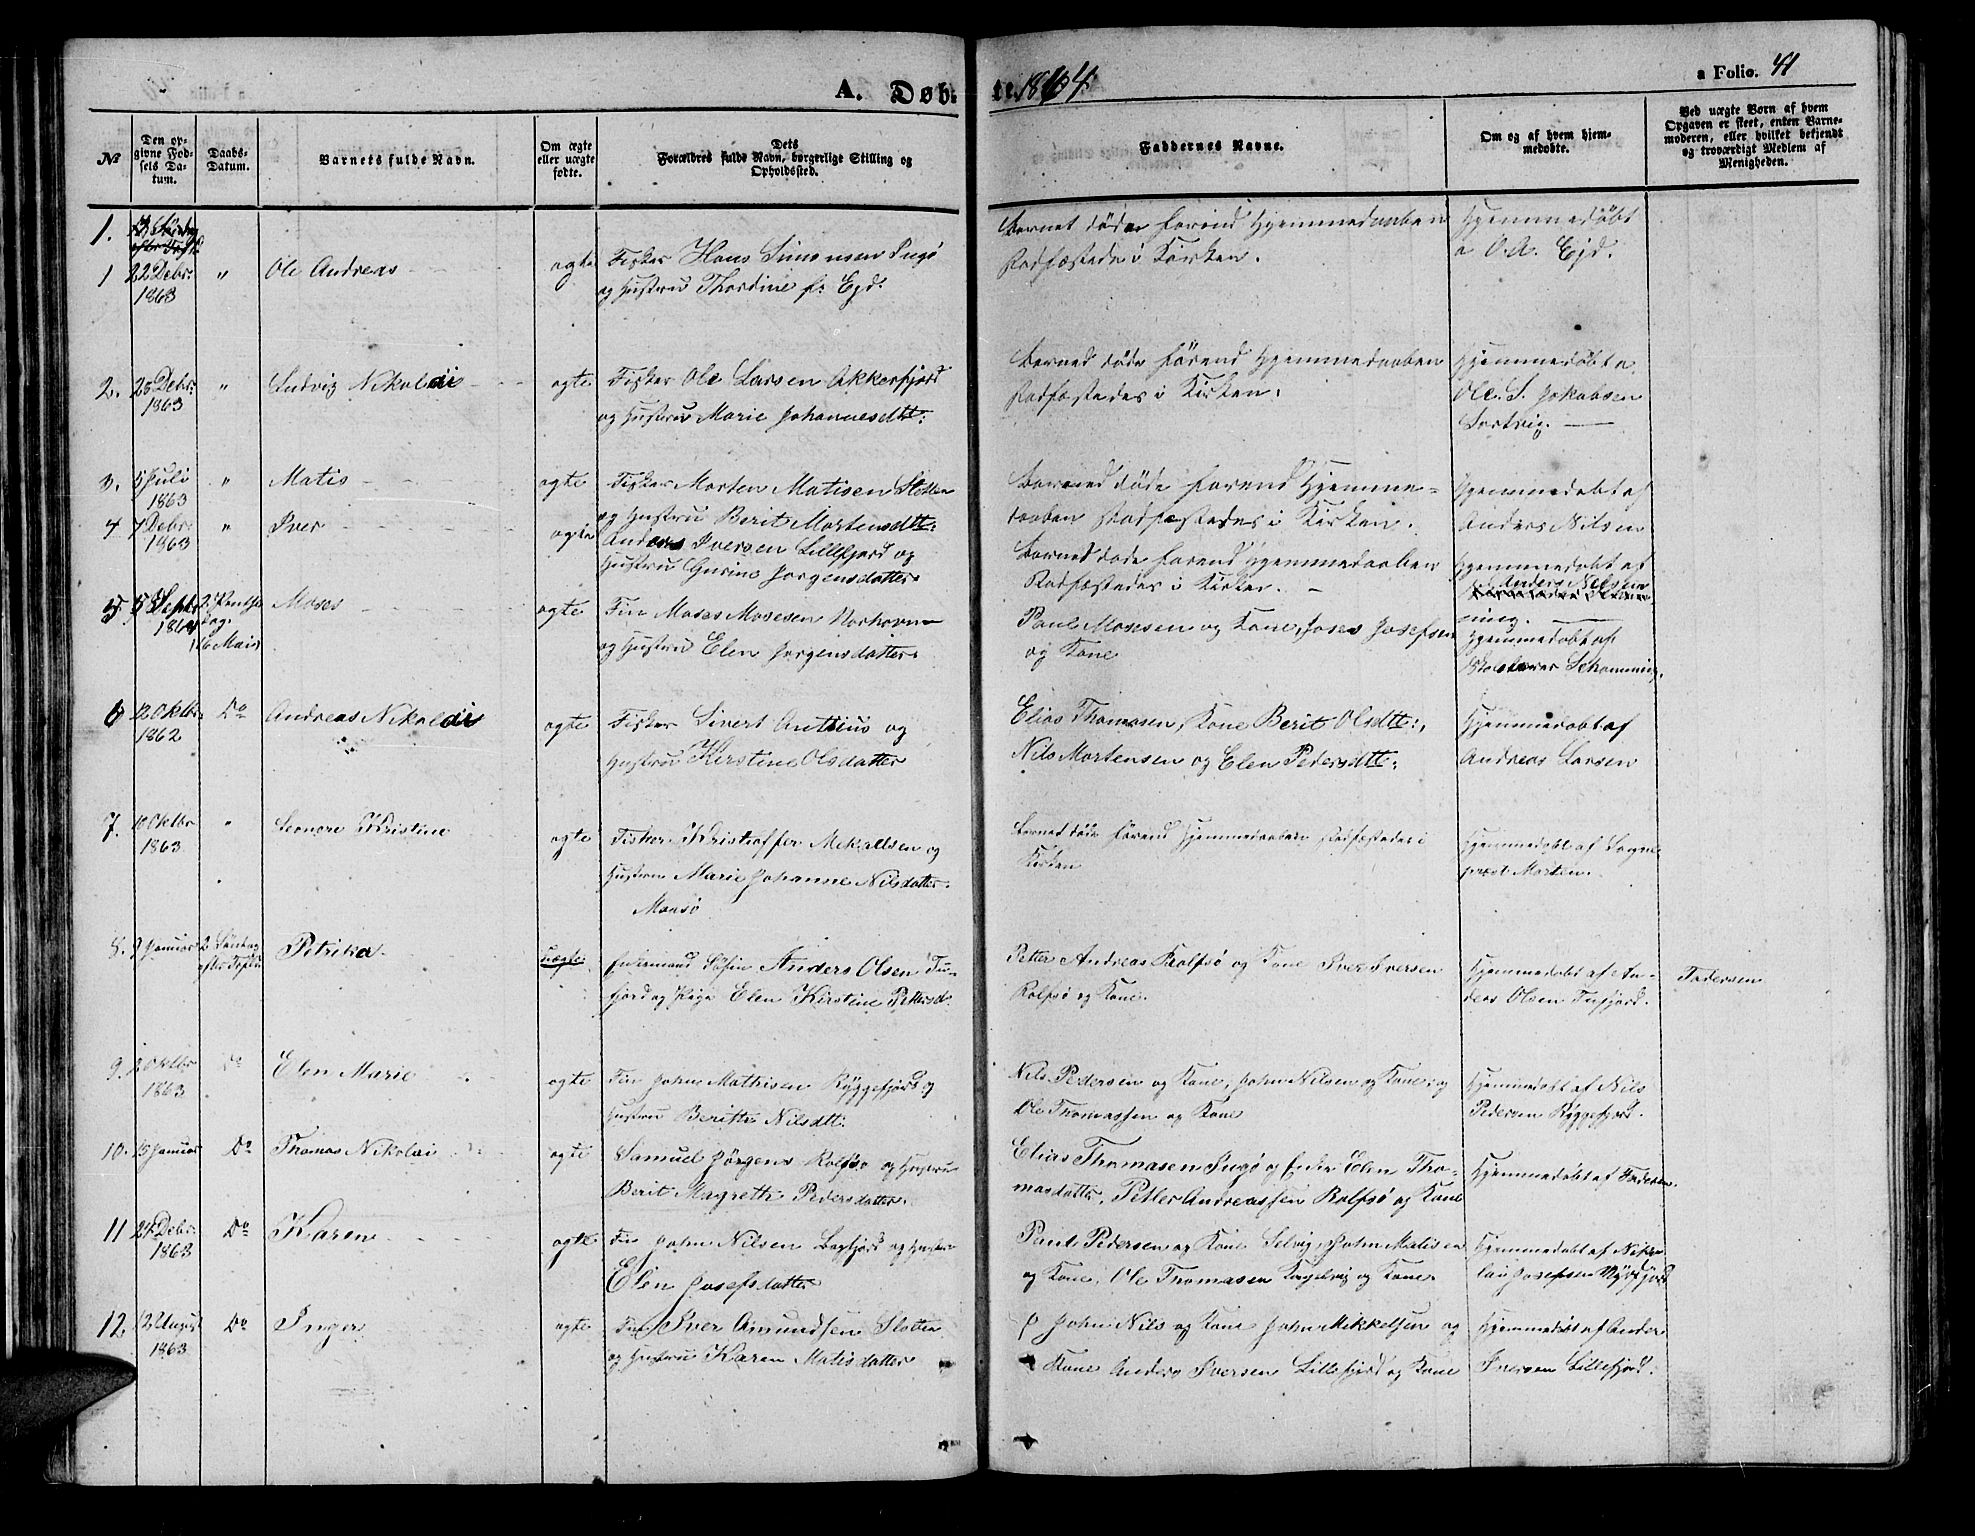 A. Døb-
te. 1864.
a Folio. 41
No
Den op-
givne Fød-
sels Da-
tum.
Daabs-
Datum.
Barnets fulde Navn.
Om ægte
eller uægte
fødte.
Dets
Forældres fulde Navn, borgerlige Stilling og
Opholdssted.
Faddernes Navne.
Om og af hvem hjem-
medøbte.
Ved uægte Børn af hvem
Opgaven er skeet, enten Barne-
moderen, eller hvilket bekjendt
og troværdigt Medlem af
Menigheden.
1.
1 22 Debr. 1863 " Ole Andreas ægte
Fisker Hans Simonsen Ingø
og Hustru Thordine f. Ejd.
Barnet døde forend Hjemmedaaben
Stadfæstedes i Kirken.
Hjemmedøbt
a O.A. Ejd.
2. 25 Debr. 1863 " Ludvig Nikolai ægte
Fisker Ole Larsen Akkerfjord
og Hustru Marie Johannesdtt:
Barned døde førend Hjemmedaaben
Stadfæstedes i Kirken.
Hjemmedøbt a
Ole S. Jakobsen
3. 5 Juli 1863 " Matis ægte
Fisker Morten Matisen Slotten
og Hustru Berit Mortensdtt:
Barned døde forend Hjemme-
daaben stadfæstedes i Kirken.
Hjemmedøbt af
Anders Nilsen
4 7 Debr. 1863 " Iver ægte
Anders Iversen Lillefjord og
Hustru Gurine Jorgensdatter
Barned døde forend Hjemmedaaben
Stadfæstedes i Kirken.
Hjemmedøbt af
Anders Nilsen
5. 5 Septr. 2 Pintse
dag.
16 Mai Moses ægte
Fin Moses Mosesen
og Hustru Elen Jorgensdatter
Paul Mosesen og Kone, Josef Josefsen
og Kone
Hjemmedøbt af
Skolelærer
6 12 Oktbr. 1862 Do Andreas Nikolai ægte
Fisker Sivert Anthius og
Hustru Kirstine Olsdatter
Elias Thomasen, Kone Berit Olsdtt:,
Nils Mortensen og Elen Pedersdtt:
Hjemmedøbt af
Andreas Larsen
7. 10 Oktbr 1863 " Leonore Kristine ægte
Fisker Kristoffer Mekalsen og
Hustru Marie Johanne Nilsdatter
Maasø
Barned døde førend Hjemmedaaben stadfæstedes i
Kirken
Hjemmedøbt af Sogne
præst Morten.
8. 9 Januar 2 Søndag
Petrika uægte
Anders Olsen Tu-
fjord og Pige Elen Kirstine Pettersd.
Petter Andreas Rolfsø og Kone Iver Iversen
Rolfsø og Kone.
Hjemmedøbt af An-
ders Olsen Tufjord.
Faderen
9. 2 Oktbr 1863 Do Elen Marie ægte
Fin John Mathisen Ryggefjord og
Hustru Berithe Nilsdtt.
Nils Pedersen og Kone, John Nilsen og Kone, og
Ole Thomassen og Kone
Hjemmedøbt af Nils
Pedersen Ryggefjord.
10. 15 Januar Do Thomas Nikolai ægte
Samuel Jørgens Rolfsø og Hustru
Berit Magrethe Pedersdatter.
Elias Thomasen Ingø og Elen Tho-
masdatter, Petter Andreassen Rolfsø og Kone
Hjemmedøbt af Faderen.
11 24 Debr. 1863 Do Karen ægte
Fin John Nilsen og Hustru
Elen Josefsdatter
Paul Pedersen og Kone Selvig, John Matisen
og Kone, Ole Thomasen og Kone.
Hjemmedøbt af Niko-
lai Josefsen
12. 12 August 1863 Do Inger ægte
Fin Iver Amundsen Slotten
og Hustru Karen Matisdatter
John Nils og Kone John Mikkelsen og
Kone Anders Iversen Lillefjord og Kone
Hjemmedøbt af Anders
Iversen Lillefjord.